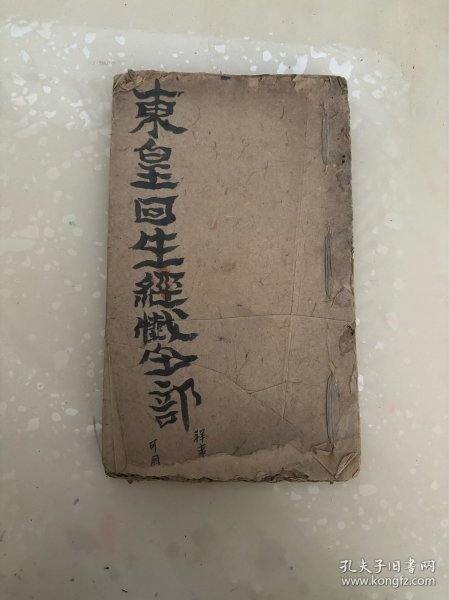 東皇回生經懺全部
可用
孔夫子旧书网
www.kongfz.com